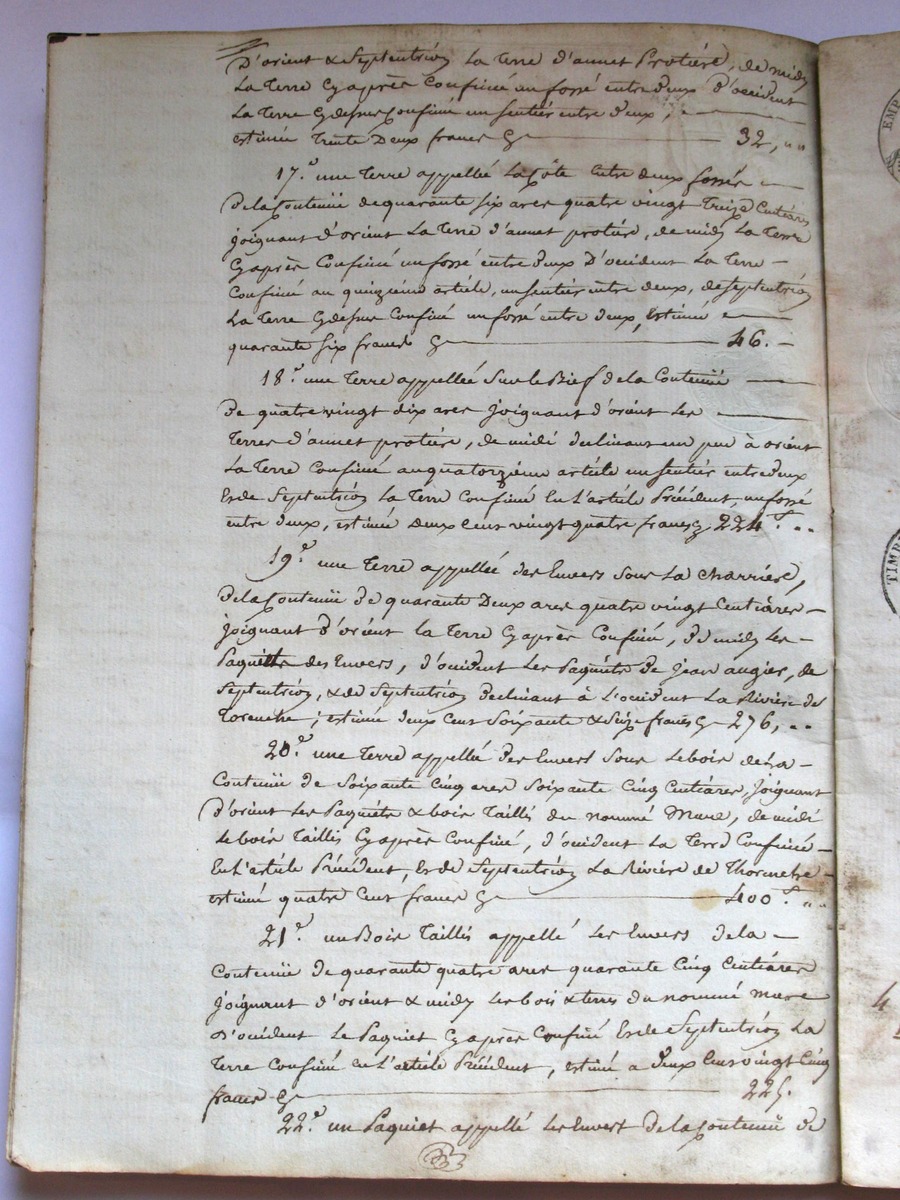 D'orient & Septentrion La Terre d'annet Protière, de midy
La Terre Cyaprès Confiné un fossé entre deux d'occident
La Terre Cydessus Confiné un sentier entre deux,
estimée Trente Deux francs Cy 32, ,,
17.e une Terre appellée La Côte Entre deux fossés
De la Contenüe de quarante six ares quatre vingt Treize Centiares
joignant d'orient La Terre d'annet protière, de midy La Terre
Cyaprès Confiné un fossé entre deux D'occident La Terre
Confiné au quinzième article, un sentier entre deux, de Septentrion
La Terre Cydessus Confiné un fossé entre deux, Estimée
quarante six francs Cy 46.
18.e une Terre appellée Sur le Bief de la Contenüe
De quatre vingt dix ares joignant d'orient Les
Terres d'annet protière, de midi declinant un peu à orient
La Terre Confiné au quatorzième article un sentier entre deux
Et de Septentrion La Terre Confiné En L'article Précédent un fossé
entre deux, estimée Deux Cent vingt quatre francs Cy 224.f ,,
19.e une Terre appellée des Envers Sous La Charrière,
De la Contenüe de quarante Deux ares quatre vingt Centiares
joignant D'orient la Terre Cyaprès Confiné, De midy Les
Paquétts des Envers, d'occident Les Paquéts De Jean augier, de
Septentrion, & de Septentrion Declinant à L'occident La Rivière des
; estimée deux Cent Soixante & Seize francs Cy 276, ,,
20.e une Terre appellée Des Envers Sous Le bois de La
Contenüe de Soixante Cinq ares Soixante Cinq Centiares, Joignant
D'orient Les Paquéts & bois Taillis du nommé Mure, de midi
Le bois Taillis Cyaprès Confiné, d'occident La Terre Confiné
En L'article Précédent, Et de Septentrion La Rivière de Thorenche
estimé quatre Cent francs Cy 400.f ,,
21.e un Bois Taillis appellé Les Envers de la
Contenüe De quarante quatre ares quarante Cinq Centiares
Joignant d'orient & midy Les bois & terres du nommé mure
D'occident Le Paquiet Cyaprès Confiné Et de Septentrion La
Terre Confiné en L'article Précédent, estimé a deux Cent vingt Cinq
francs Cy 225.
22.e un Paquiet appellé Les Envers De la Contenüe de
EMP
TIMB
4